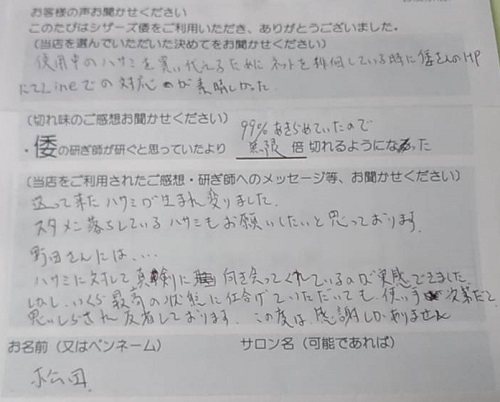 お客様の声お聞かせください
このたびはシザーズ倭をご利用いただき、ありがとうございました。
(当店を選んでいただいた決めてをお聞かせください)
使用中のハサミを買い代えるためにネットを利用している時に倭さんのHP
にてLineでの対応のが素晴しかった
(切れ味のご感想お聞かせください)
99%あきらめていたので
・倭の研ぎ師が研ぐと思っていたより 無限 倍切れるようになった
(当店をご利用されたご感想・研ぎ師へのメッセージ等、お聞かせください)
送って来たハサミが生まれ変りました。
スタメン落ちしているハサミもお願いしたいと思っております。
野田さんには、...
ハサミに対して真剣に向き会ってくれているのが実感できました。
しかし、いくら最高の状態に仕上げていただいても、使い手次第だと
思いしらされ反省しております。この度は感謝しかありません
お名前(又はペンネーム) サロン名(可能であれば)
松田